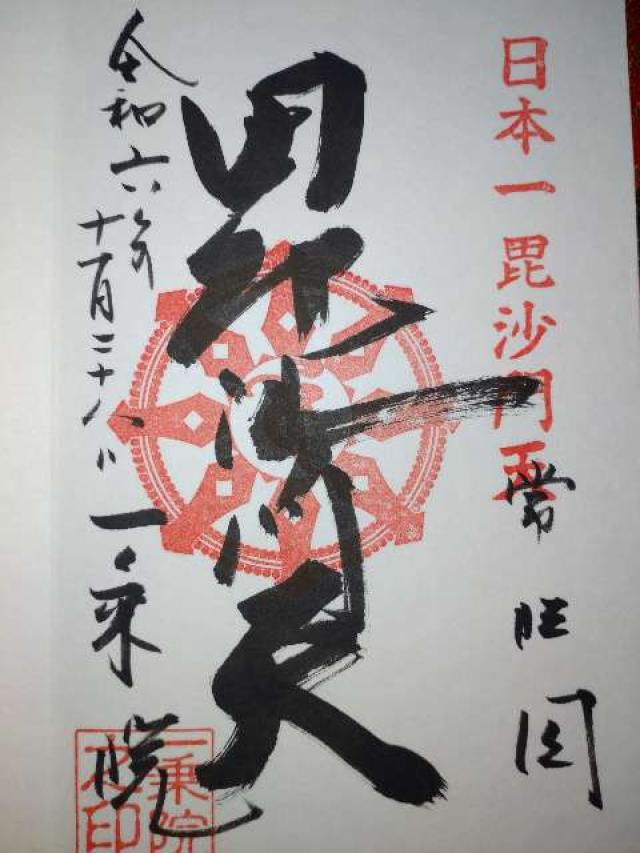 日本一毘沙門天
常陸国
毘沙門天
令和六年
十一月二十八日
一乗院
一乗院
之印